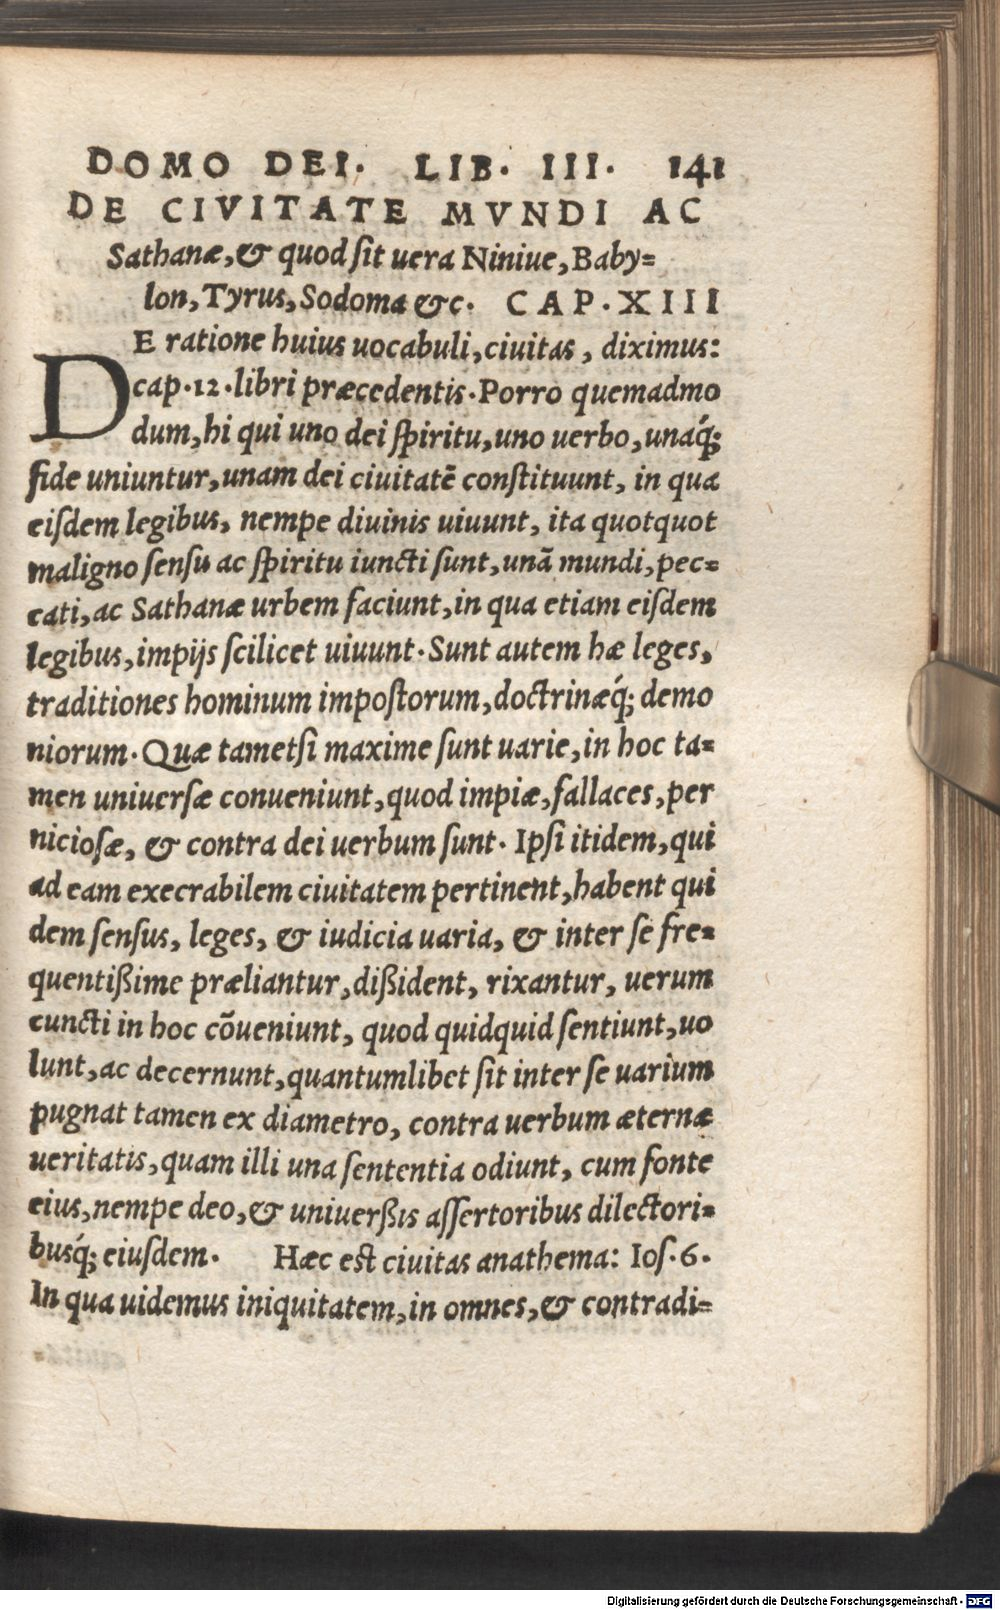 DOMO DEI. LIB. III. 141
DE CIVITATE MVNDI AC
Sathanæ, & quod ſit uera Niniue, Baby=
lon, Tyrus, Sodoma &c. CAP. XIII
DE ratione huius uocabuli, ciuitas, diximus:
cap. 12. libri præcedentis. Porro quemadmo
dum, hi qui uno dei ſpiritu, uno uerbo, unaq́;
fide uniuntur, unam dei ciuitatē conſtituunt, in qua
eiſdem legibus, nempe diuinis uiuunt, ita quotquot
maligno ſenſu ac ſpiritu iuncti ſunt, unā mundi, pec=
cati, ac Sathanæ urbem faciunt, in qua etiam eiſdem
legibus, impijs ſcilicet uiuunt. Sunt autem hæ leges,
traditiones hominum impoſtorum, doctrinæq́; demo
niorum. Quæ tametſi maxime ſunt uarie, in hoc ta=
men uniuerſæ conueniunt, quod impiæ, fallaces, per
nicioſæ, & contra dei uerbum ſunt. Ipſi itidem, qui
ad eam execrabilem ciuitatem pertinent, habent qui
dem ſenſus, leges, & iudicia uaria, & inter ſe fre=
quentißime præliantur, dißident, rixantur, uerum
cuncti in hoc cōueniunt, quod quidquid ſentiunt, uo
lunt, ac decernunt, quantumlibet ſit inter ſe uarium
pugnat tamen ex diametro, contra uerbum æternæ
ueritatis, quam illi una ſententia odiunt, cum fonte
eius, nempe deo, & uniuerßis aſſertoribus dilectori=
busq́; eiuſdem. Hæc eſt ciuitas anathema: Ioſ. 6.
In qua uidemus iniquitatem, in omnes, & contradi=
Digitalisierung gefördert durch die Deutsche Forschungsgemeinschaft - DFG